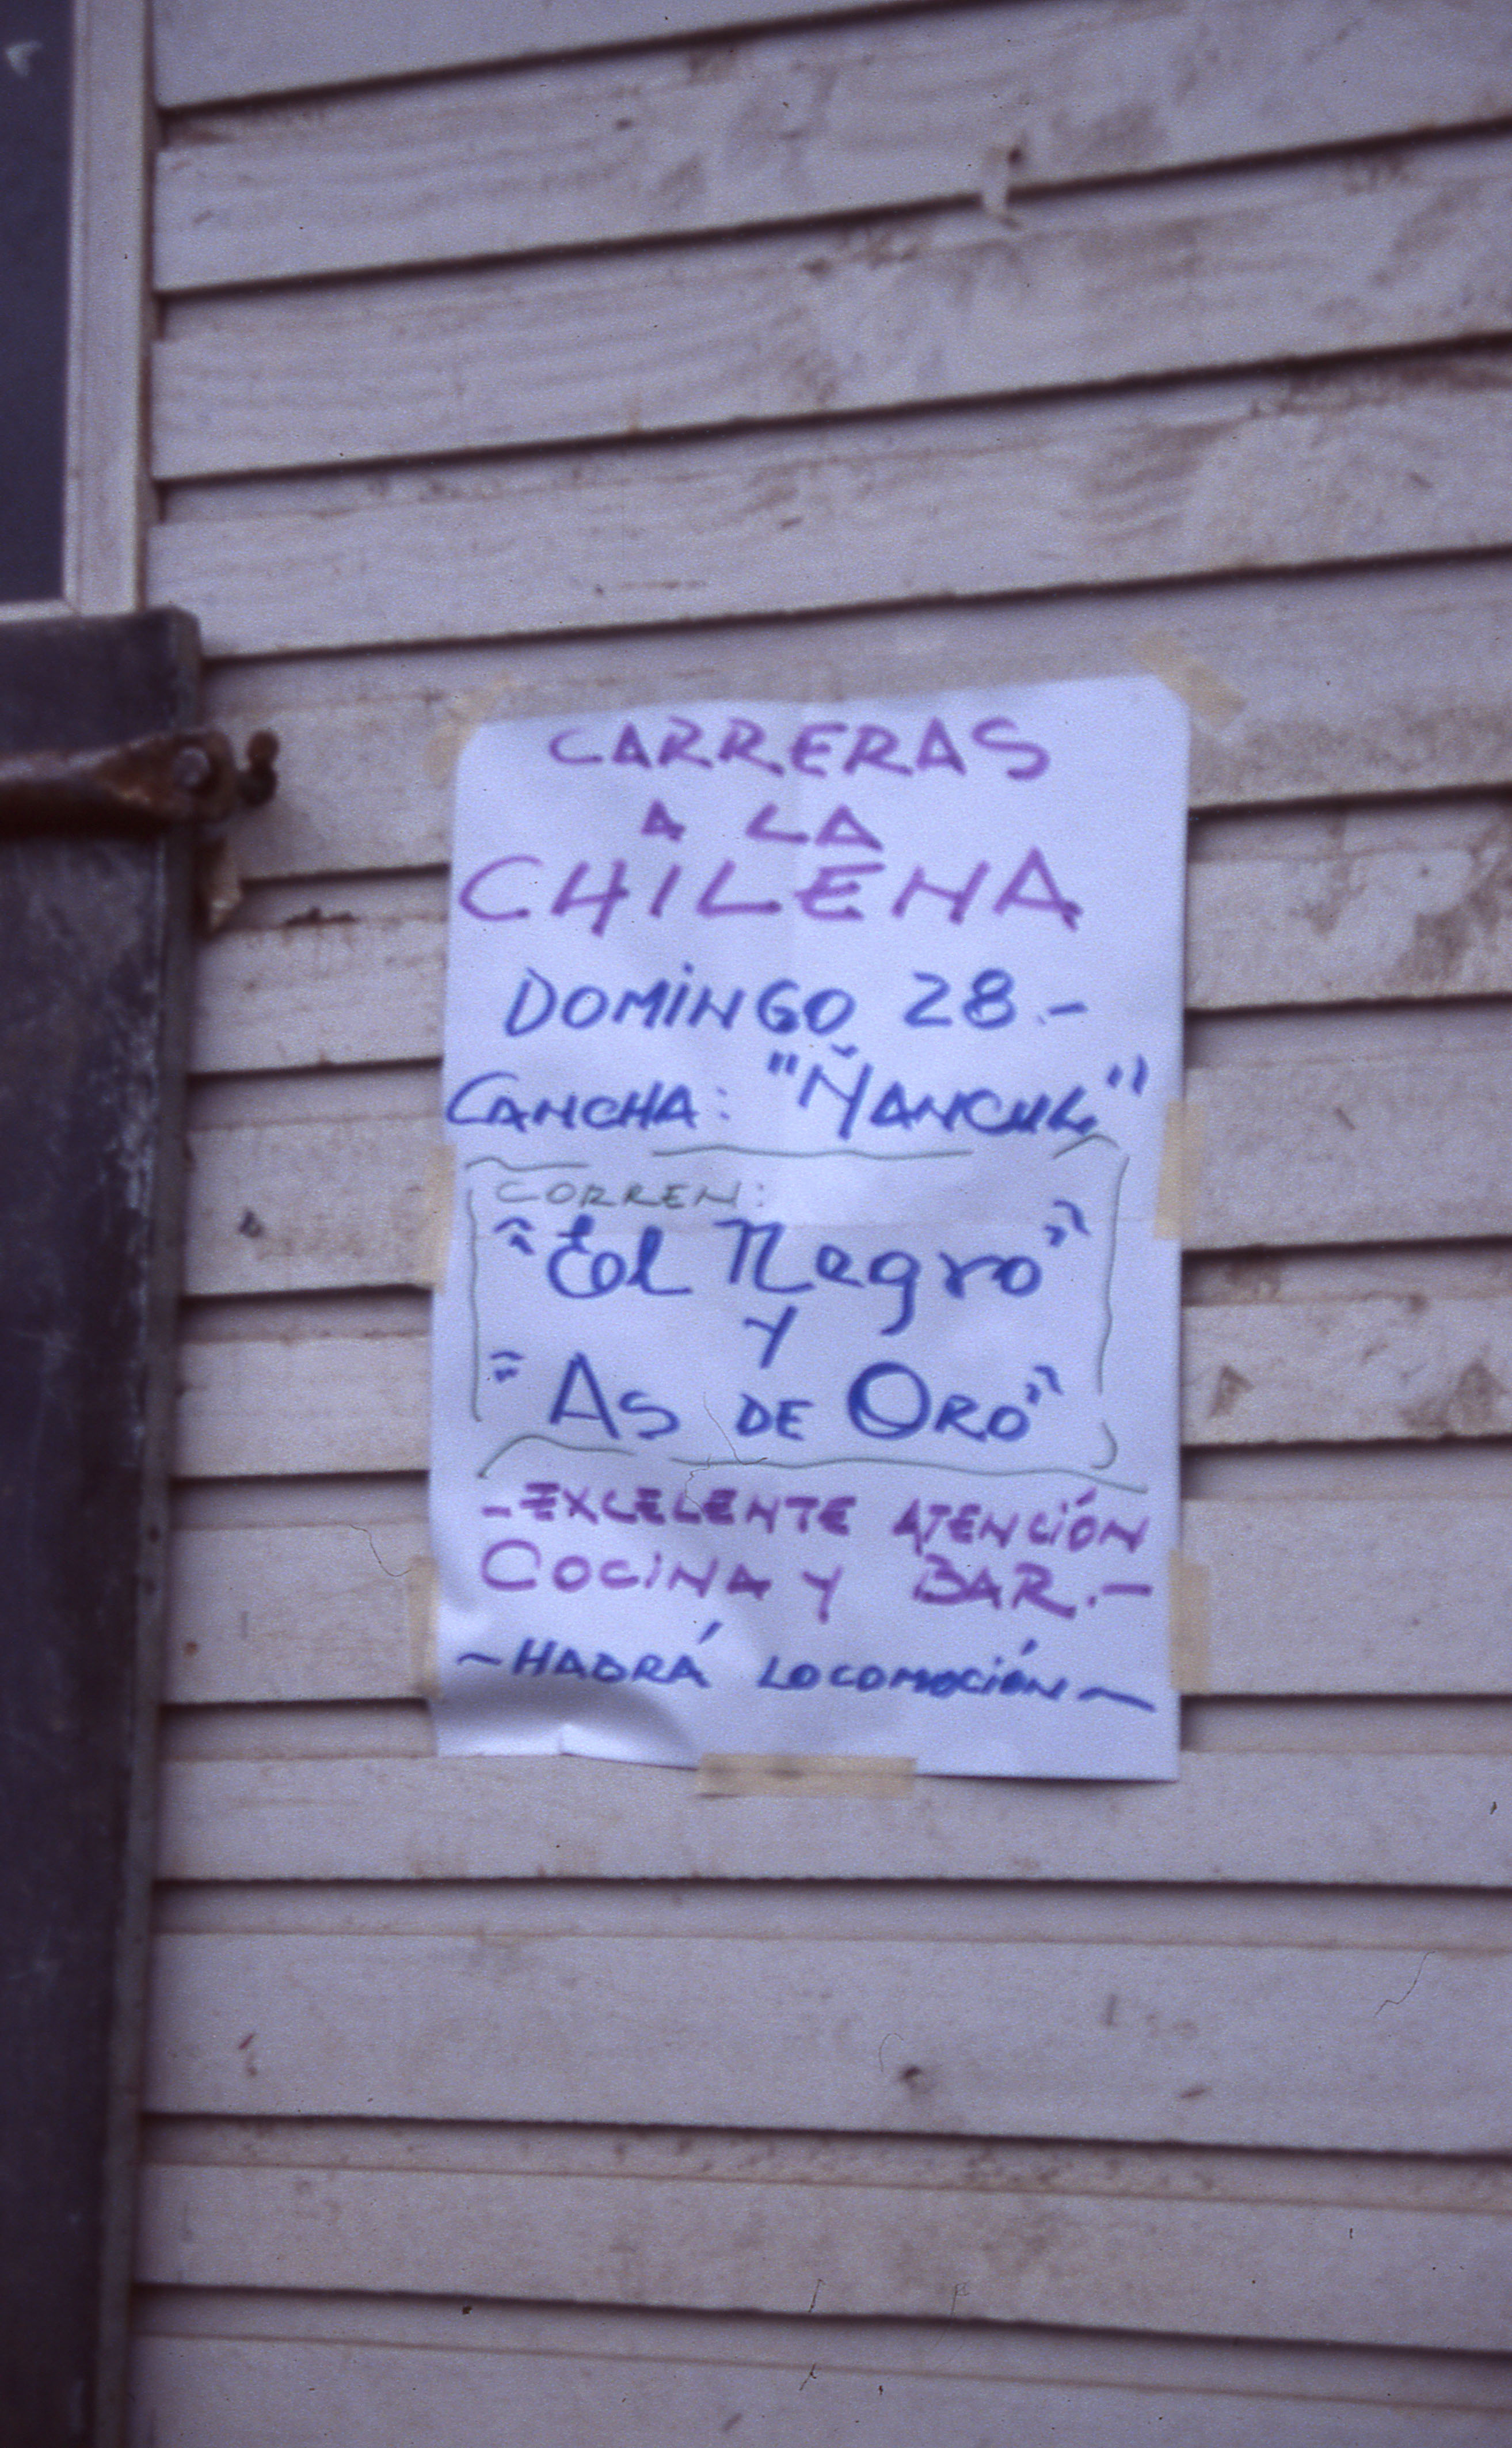 CARRERAS
A LA
CHILENA
DOMINGO 28.-
CANCHA: "ÑANCUL"
CORREN:
"El Negro"
Y
"As DE ORO"
-EXCELENTE ATENCIÓN
COCINA Y BAR.-
~HABRÁ LOCOMOCIÓN~